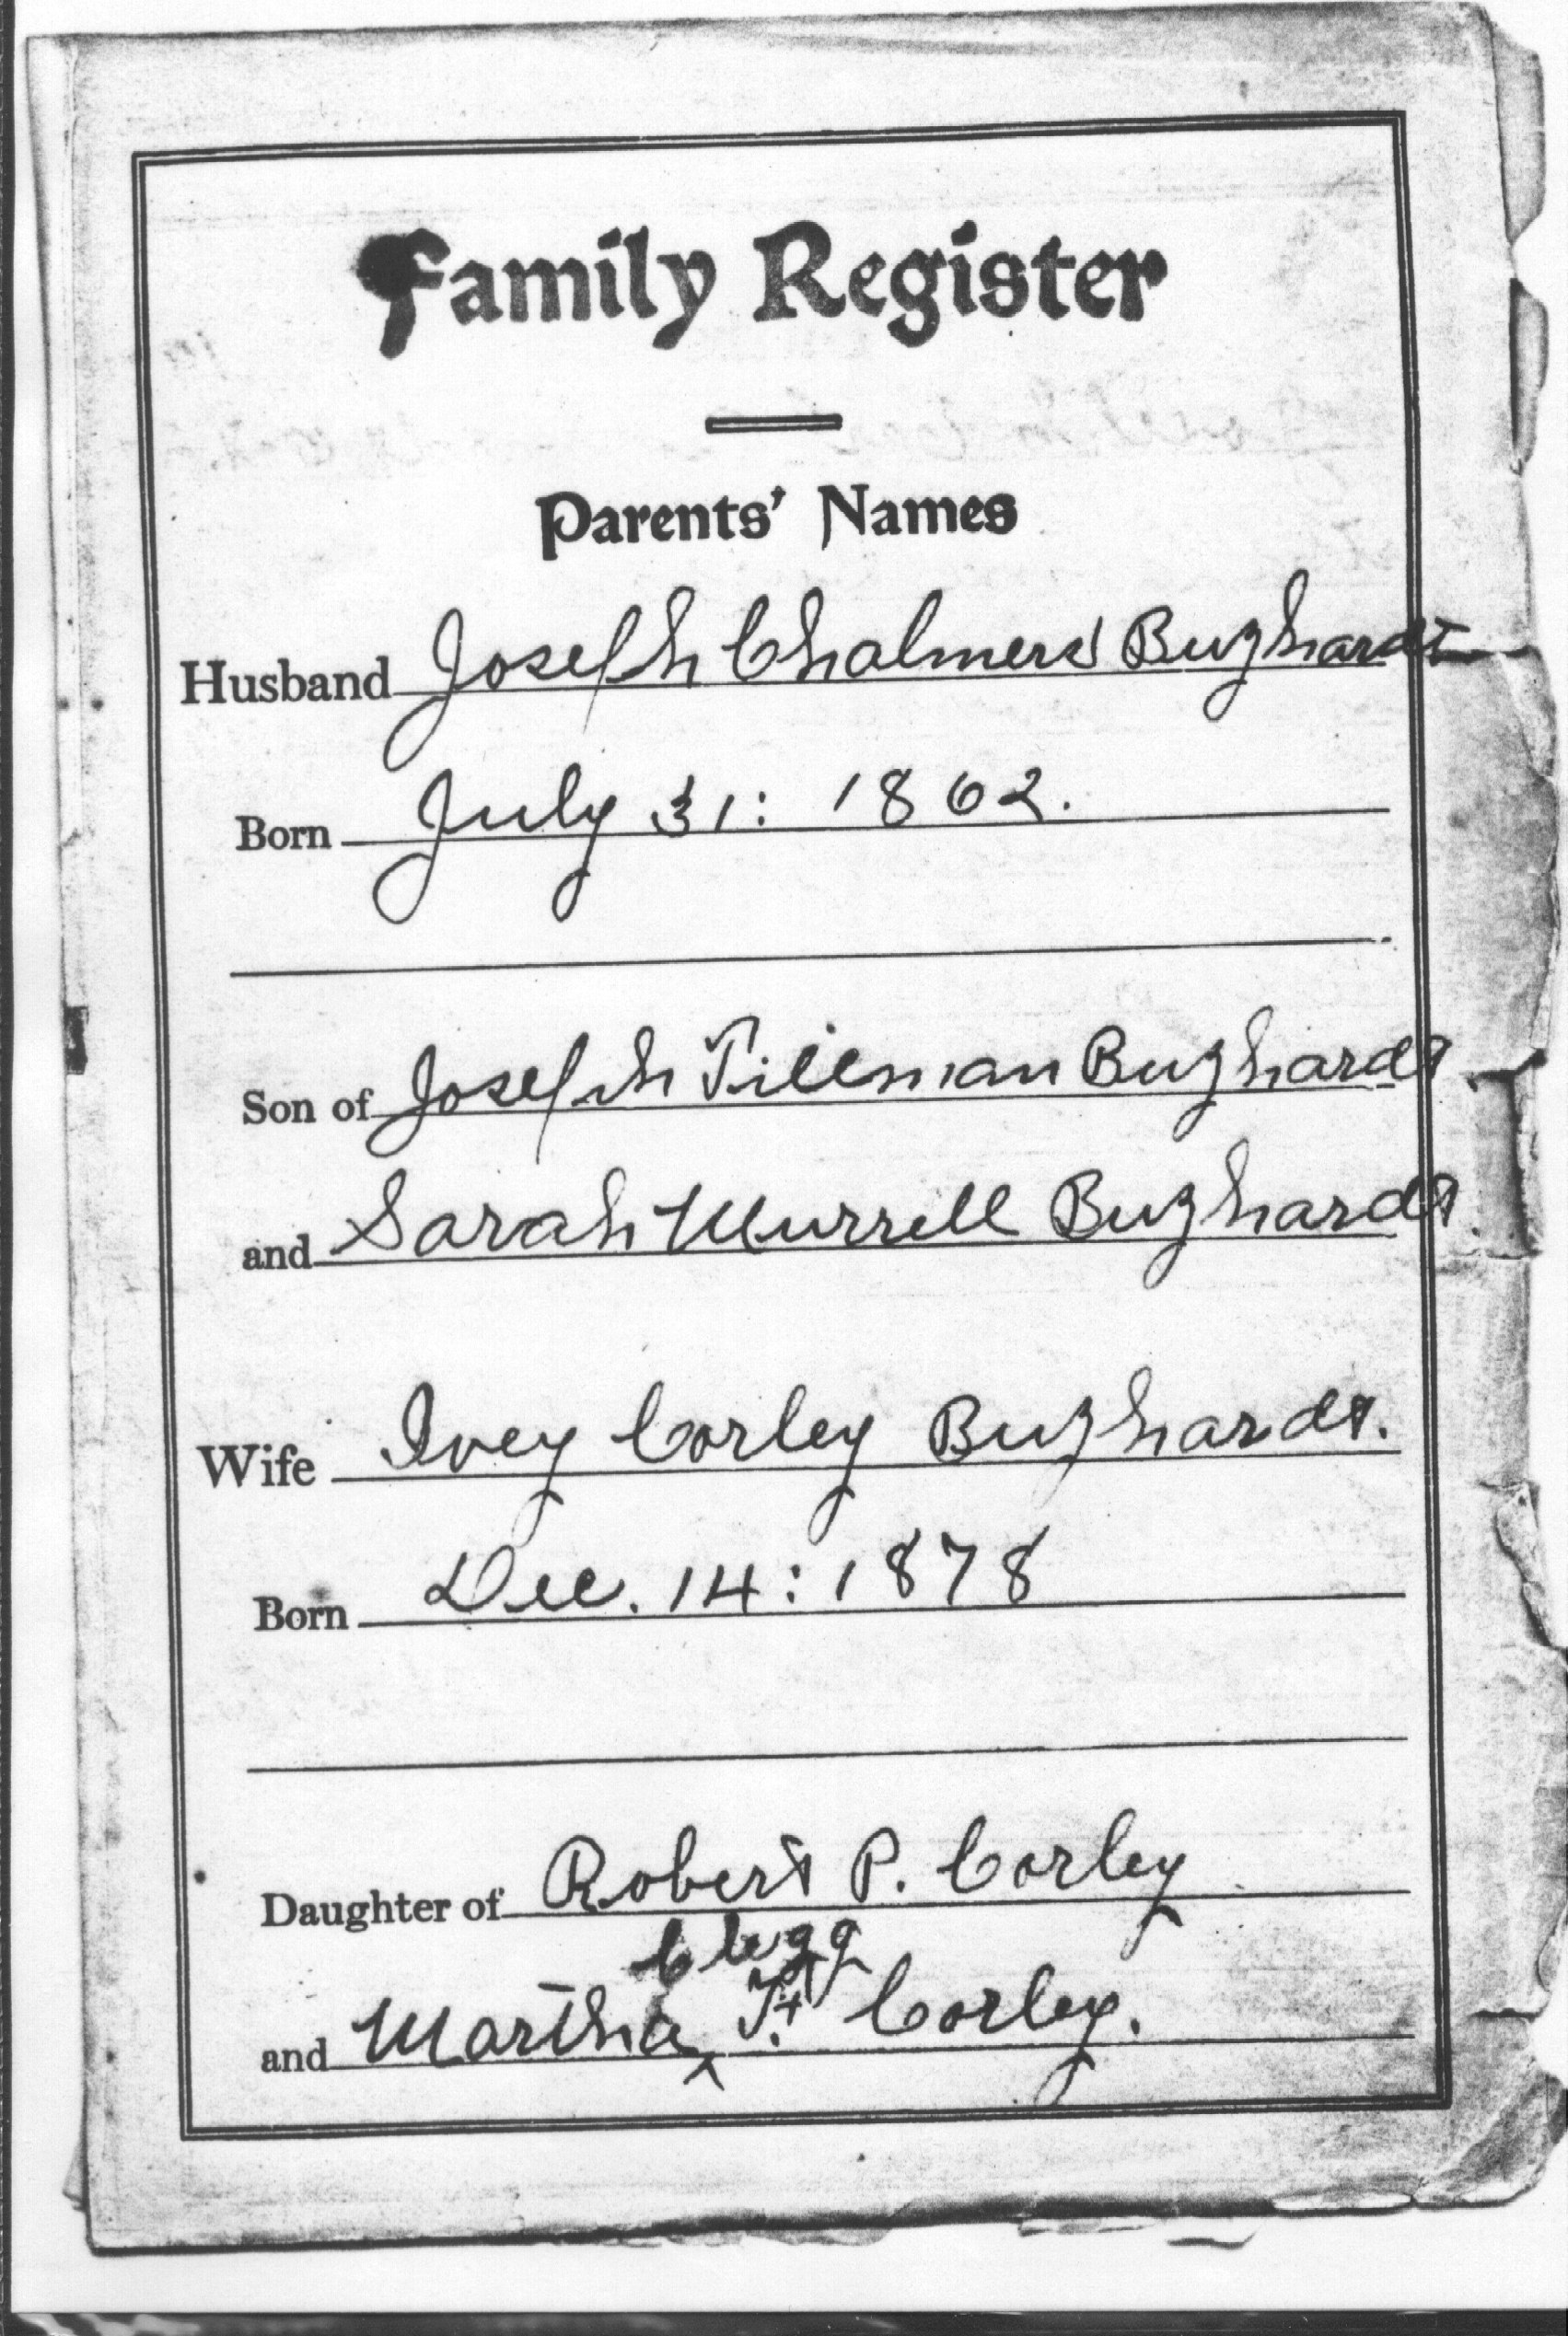 Family Register
Parents' Names
Husband Joseph Chalmers Buzhardt
Born July 31: 1862.
Son of Joseph Tillman Buzhardt
and Sarah Murrell Buzhardt
Wife Ivey Corley Buzhardt.
Born Dec. 14: 1878
Daughter of Robert P. Corley
Clegg
and Martha ^ Corley.